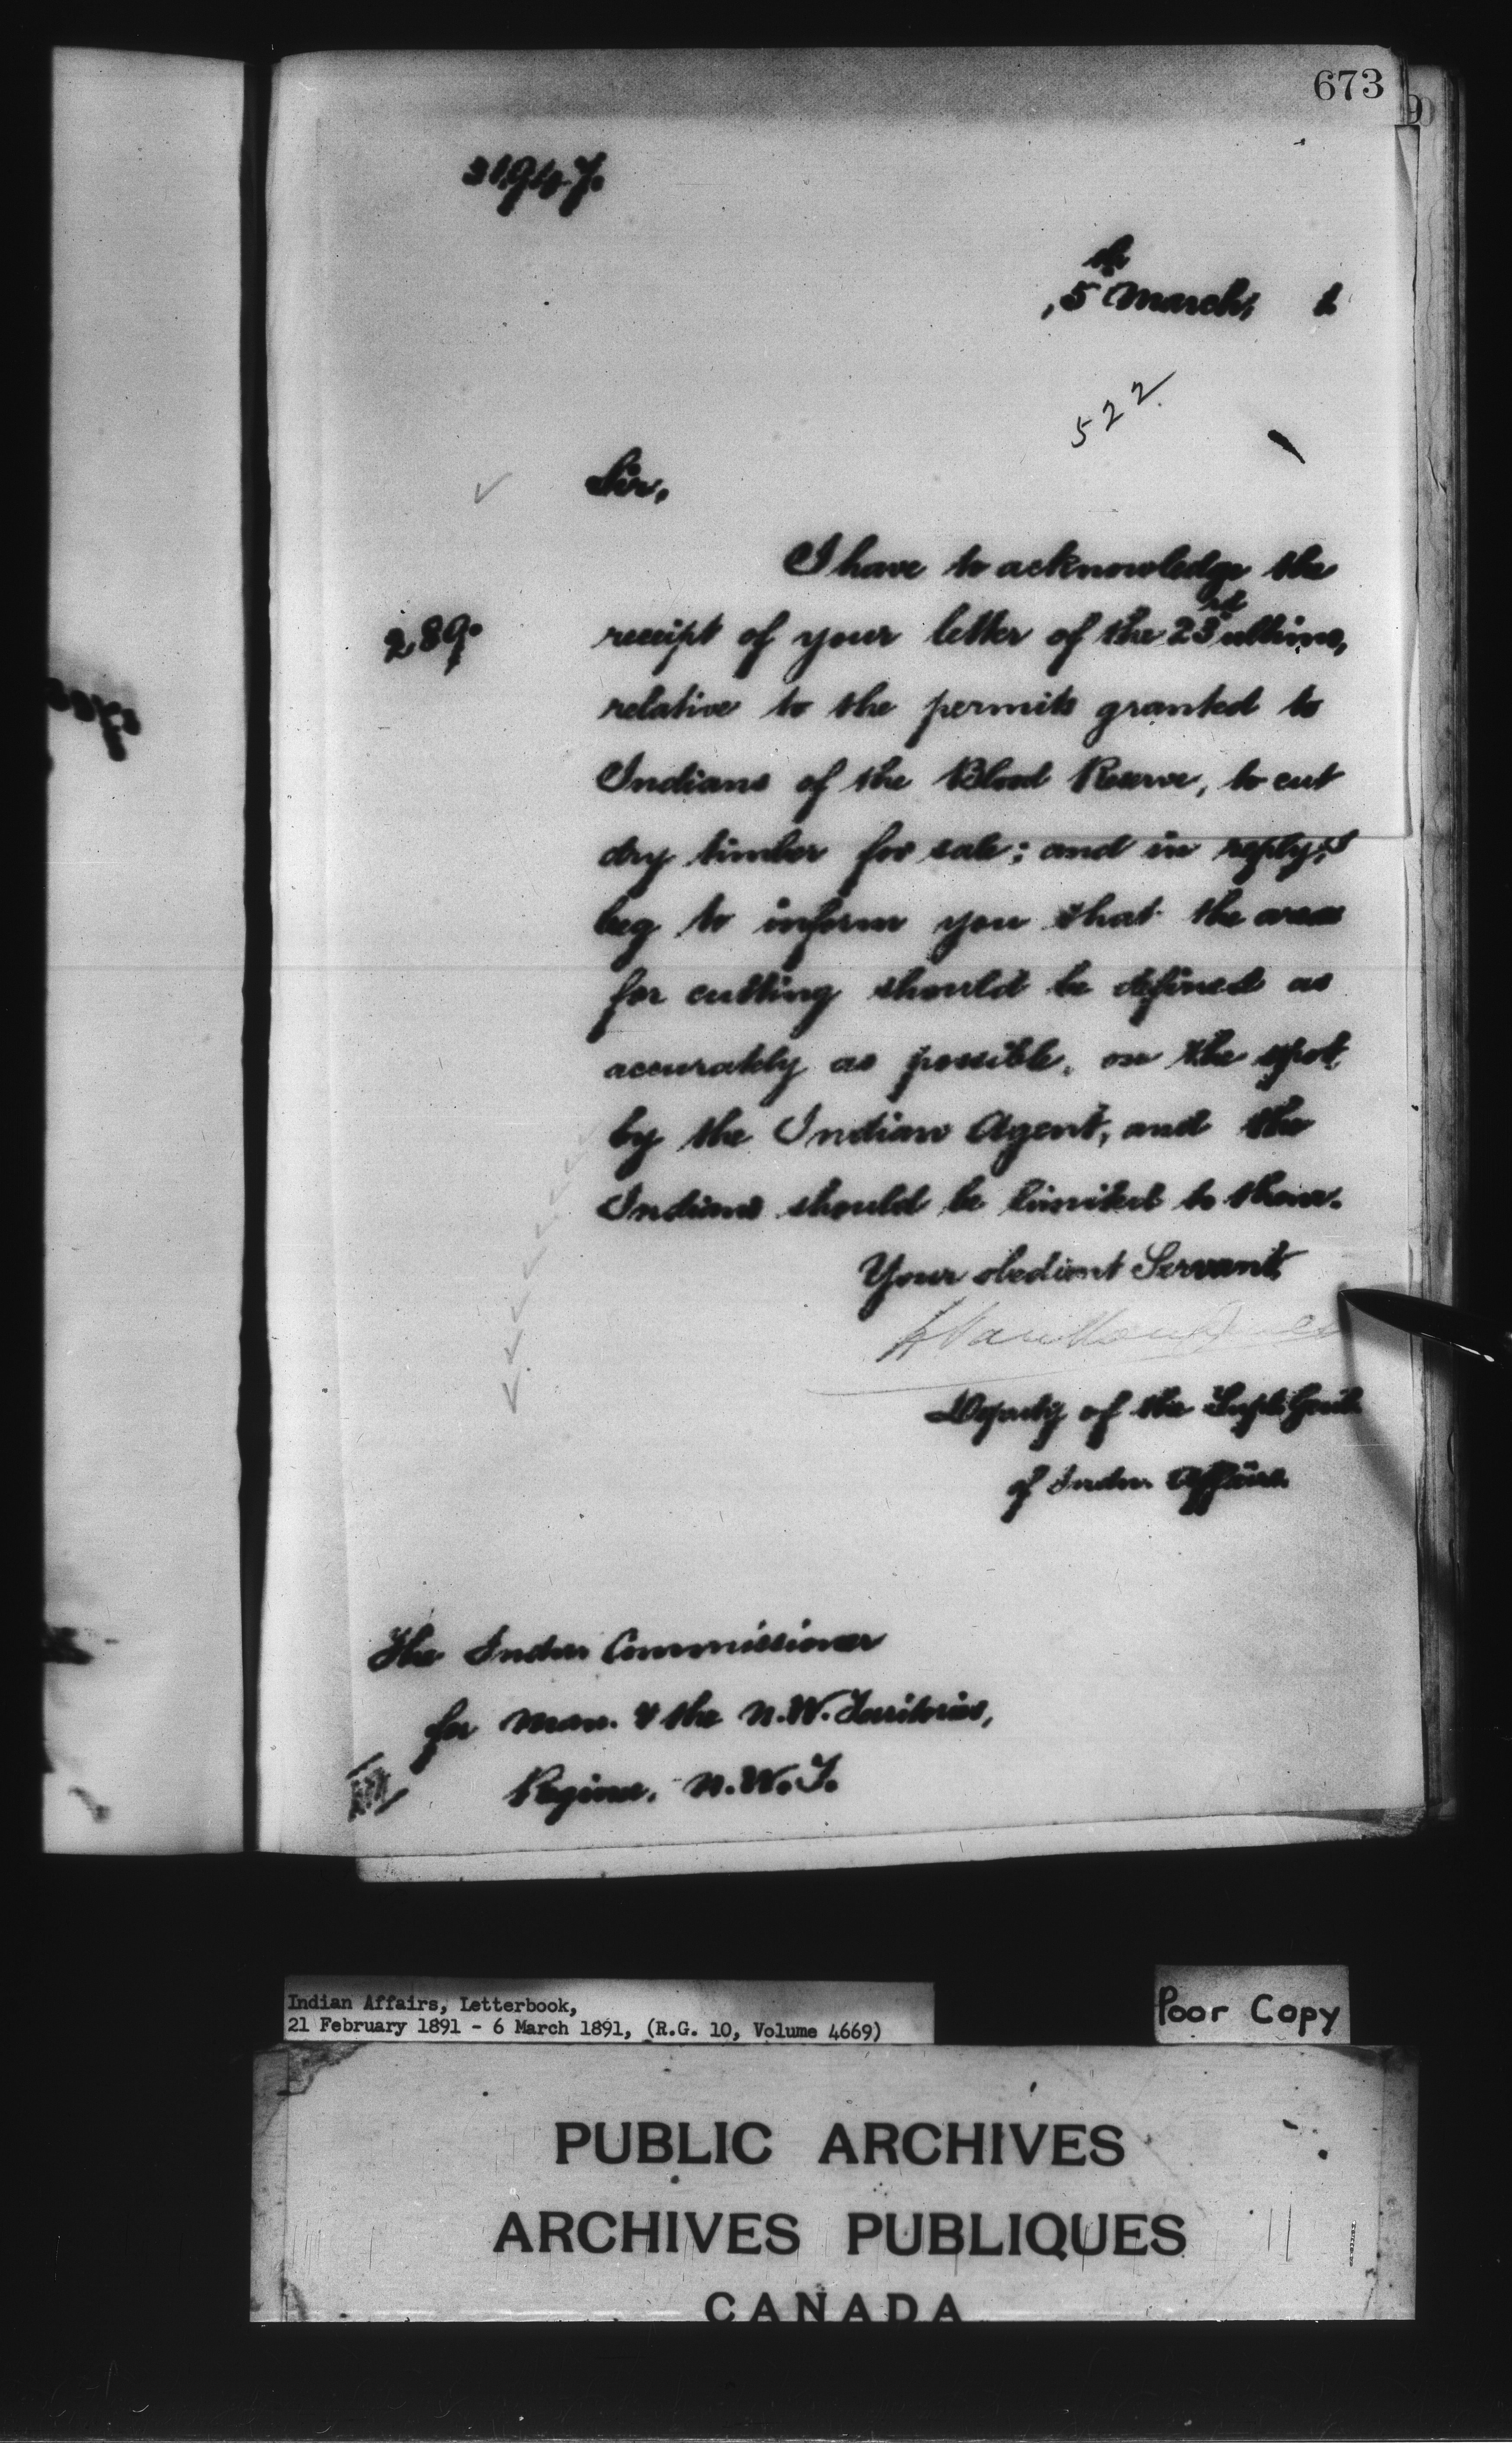 673
5th March, 1
522
Sir,
I have to acknowledge the
289. receipt of your letter of the 23rd ultimo,
relative to the permits granted to
Indians of the Blood Reserve, to cut
dry timber for sale; and in reply, I
beg to inform you that the areas
for cutting should be defined as
accurately as possible, on the spot,
by the Indian Agent, and the
Indians should be limited to them.
Your obedient Servant,
Deputy of the Supt. Genl.
of Indn. Affairs.
The Indn Commissioner
for Man. & the N.W. Territories,
Regina. N.W.T.
Indian Affairs, Letterbook,
21 February 1891 - 6 March 1891, (R.G. 10, Volume 4669)
Poor Copy
PUBLIC ARCHIVES
ARCHIVES PUBLIQUES
CANADA